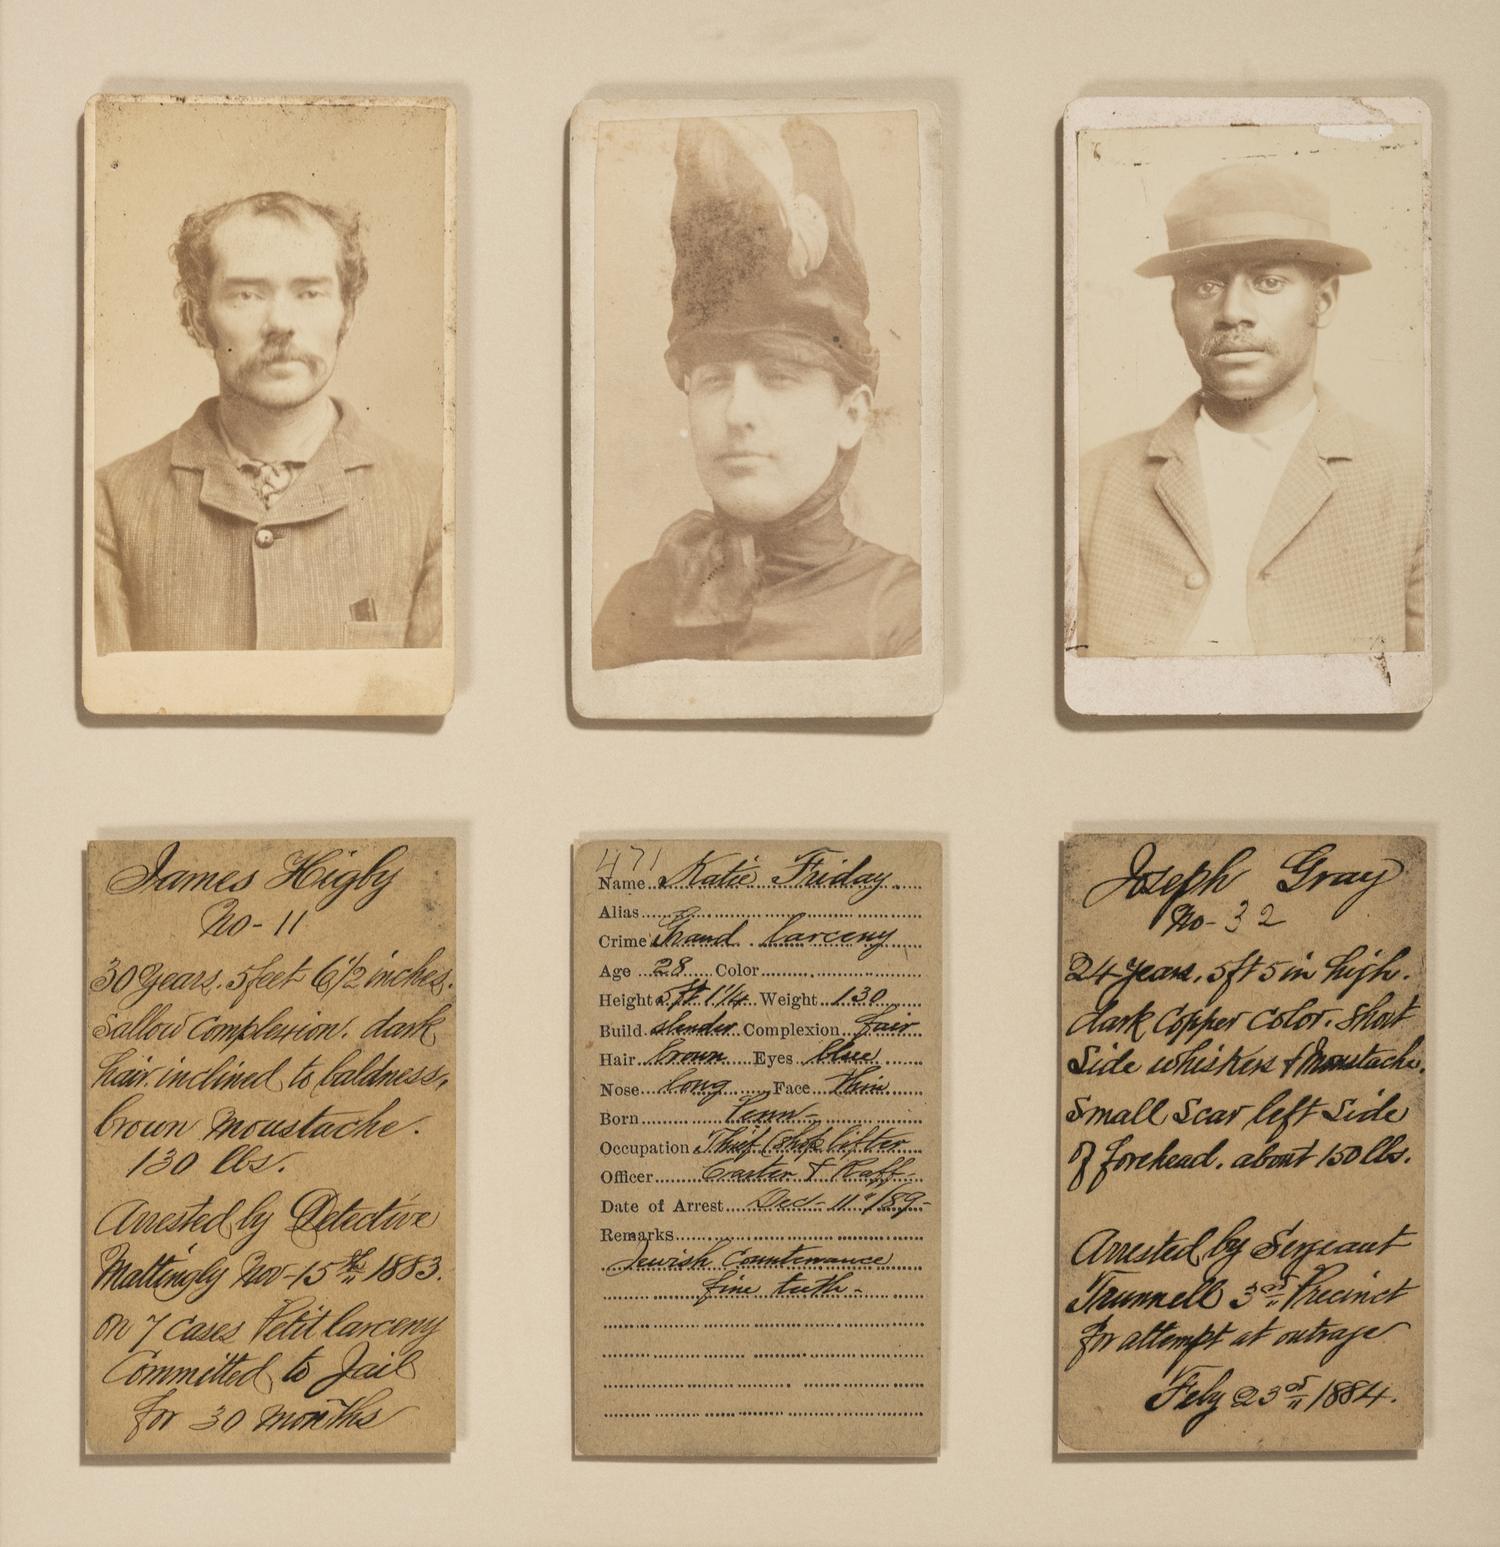 James Higby
No-11
30 years. 5 feet 6 1/2 inches.
Sallow Complexion. dark
hair inclined to baldness,
brown moustache.
130 lbs.
Arrested by Detective
Mattingly Nov-15th 1883.
on 7 cases Petit larceny
Committed to Jail
for 30 months
471
Name Katie Friday
Alias
Crime Grand larceny
Age 28 Color
Height 5 ft 1 1/4 Weight 130
Build slender Complexion fair
Hair brown Eyes blue
Nose long Face thin
Born
Occupation Thief (shop lifter
Officer Carter & Raff
Date of Arrest Dec- 11"/89-
Remarks
Jewish Countenance
fine teeth-
Joseph Gray
No-32
24 years. 5 ft 5 in high.
dark Copper Color. Short
Side whiskers & moustache.
Small Scar left Side
of forehead. about 150 lbs.
Arrested by Sergeant
Trunnell 3rd Precinct
for attempt at outrage
Feby 23rd 1884.